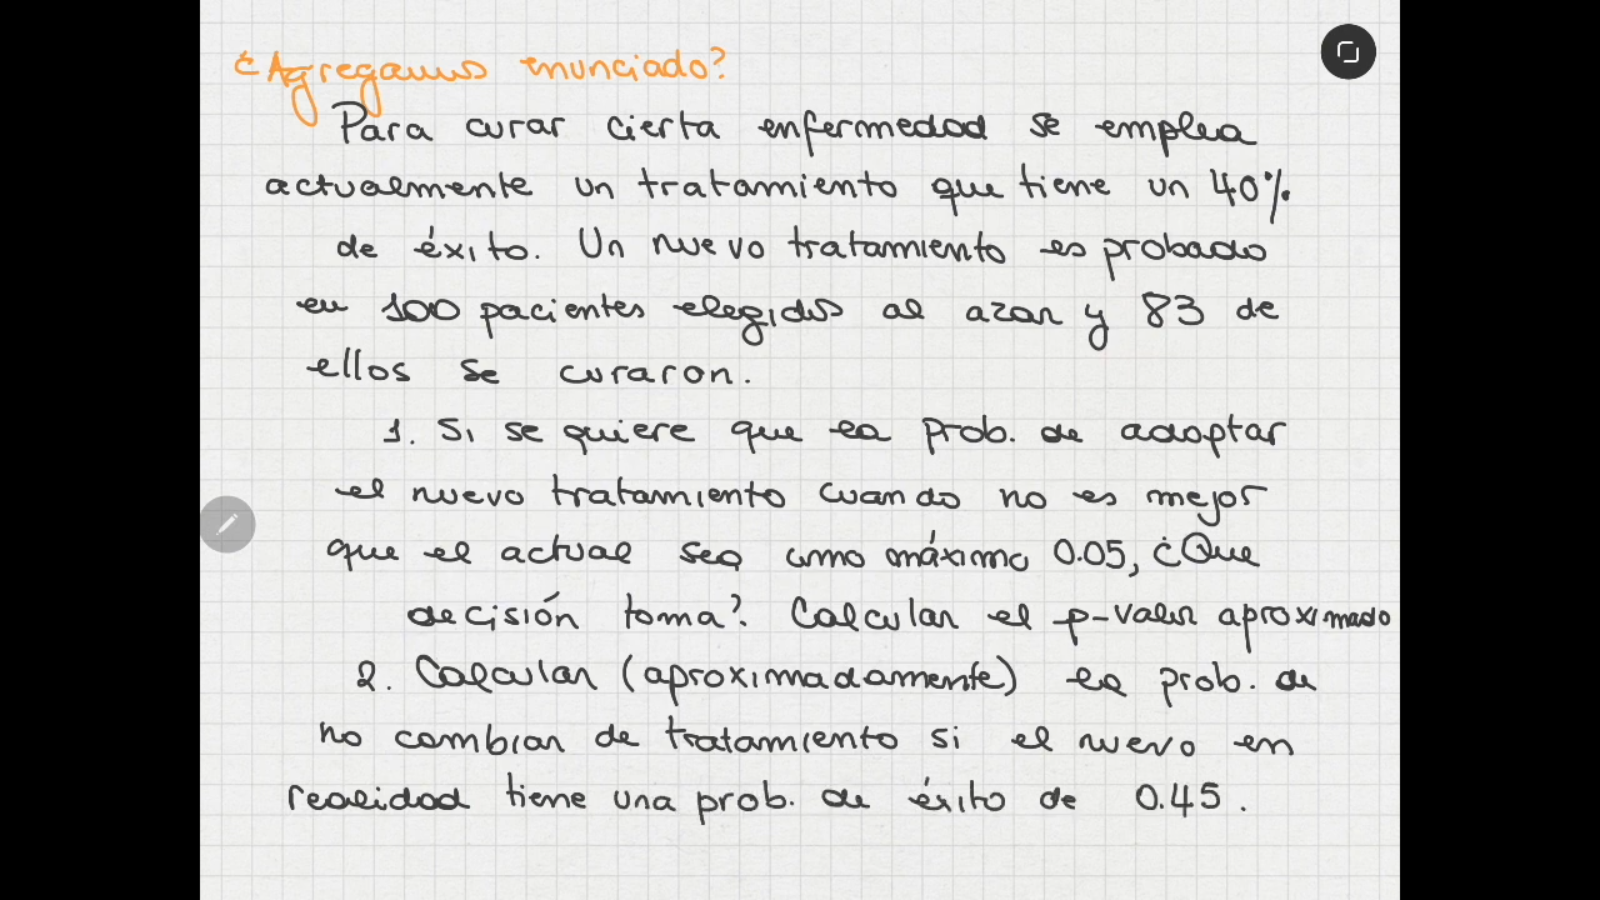 ¿Agregamos enunciado?
Para curar cierta enfermedad se emplea
actualmente un tratamiento que tiene un 40%
de éxito. Un nuevo tratamiento es probado
en 100 pacientes elegidos al azar y 83 de
ellos se curaron.
1. Si se quiere que la prob. de adoptar
el nuevo tratamiento cuando no es mejor
que el actual sea como máximo 0.05, ¿Que
decisión toma?. Calcular el p-valor aproximado
2. Calcular (aproximadamente) la prob. de
no cambiar de tratamiento si el nuevo en
realidad tiene una prob. de éxito de 0.45.